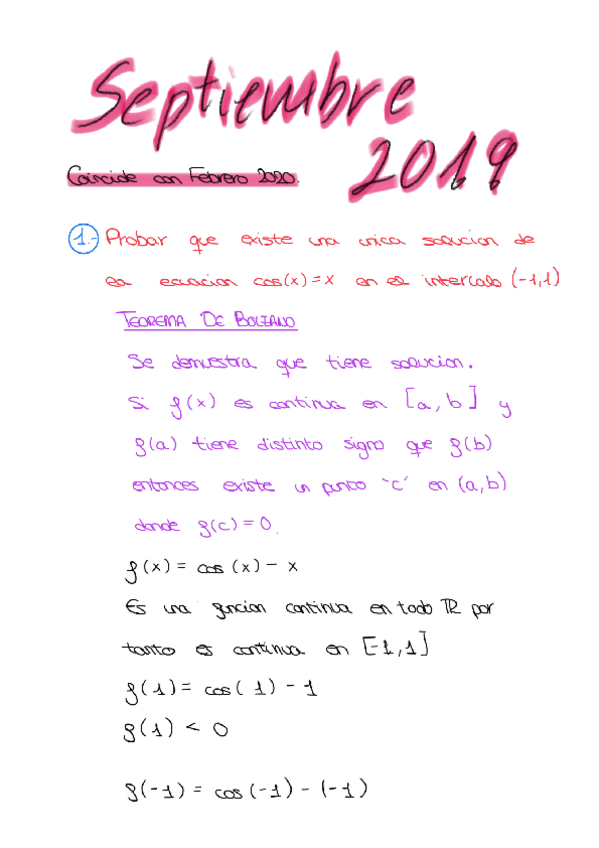 Septiembre
2019
Coincide con Febrero 2020.
1.- Probar que existe una unica solucion de
la ecuacion cos(x)=x en el intercalo (-1,1)
TEOREMA DE BOLZANO
Se demuestra que tiene solucion.
Si f(x) es continua en [a,b] y
f(a) tiene distinto signo que f(b)
entonces existe un punto "c" en (a,b)
donde f(c)=0.
f(x)= cos(x)- x
Es una funcion continua en todo R por
tanto es continua en [-1,1]
f(1)= cos( 1) - 1
f(1) < 0
f(-1) = cos(-1) - (-1)